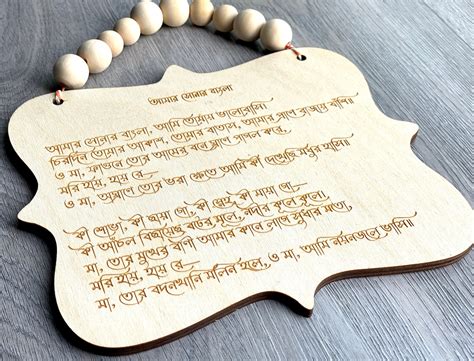 আমার সোনার বাংলা
আমার সোনার বাংলা, আমি তোমায় ভালোবাসি।
চিরদিন তোমার আকাশ, তোমার বাতাস, আমার প্রাণে বাজায় বাঁশি॥
ও মা, ফাগুনে তোর আমের বনে ঘ্রাণে পাগল করে,
মরি হায়, হায় রে—
ও মা, অঘ্রাণে তোর ভরা ক্ষেতে আমি কী দেখেছি মধুর হাসি॥
কী শোভা, কী ছায়া গো, কী স্নেহ, কী মায়া গো—
কী আঁচল বিছায়েছ বটের মূলে, নদীর কূলে কূলে।
মা, তোর মুখের বাণী আমার কানে লাগে সুধার মতো,
মরি হায়, হায় রে—
মা, তোর বদনখানি মলিন হলে, ও মা, আমি নয়নজলে ভাসি॥